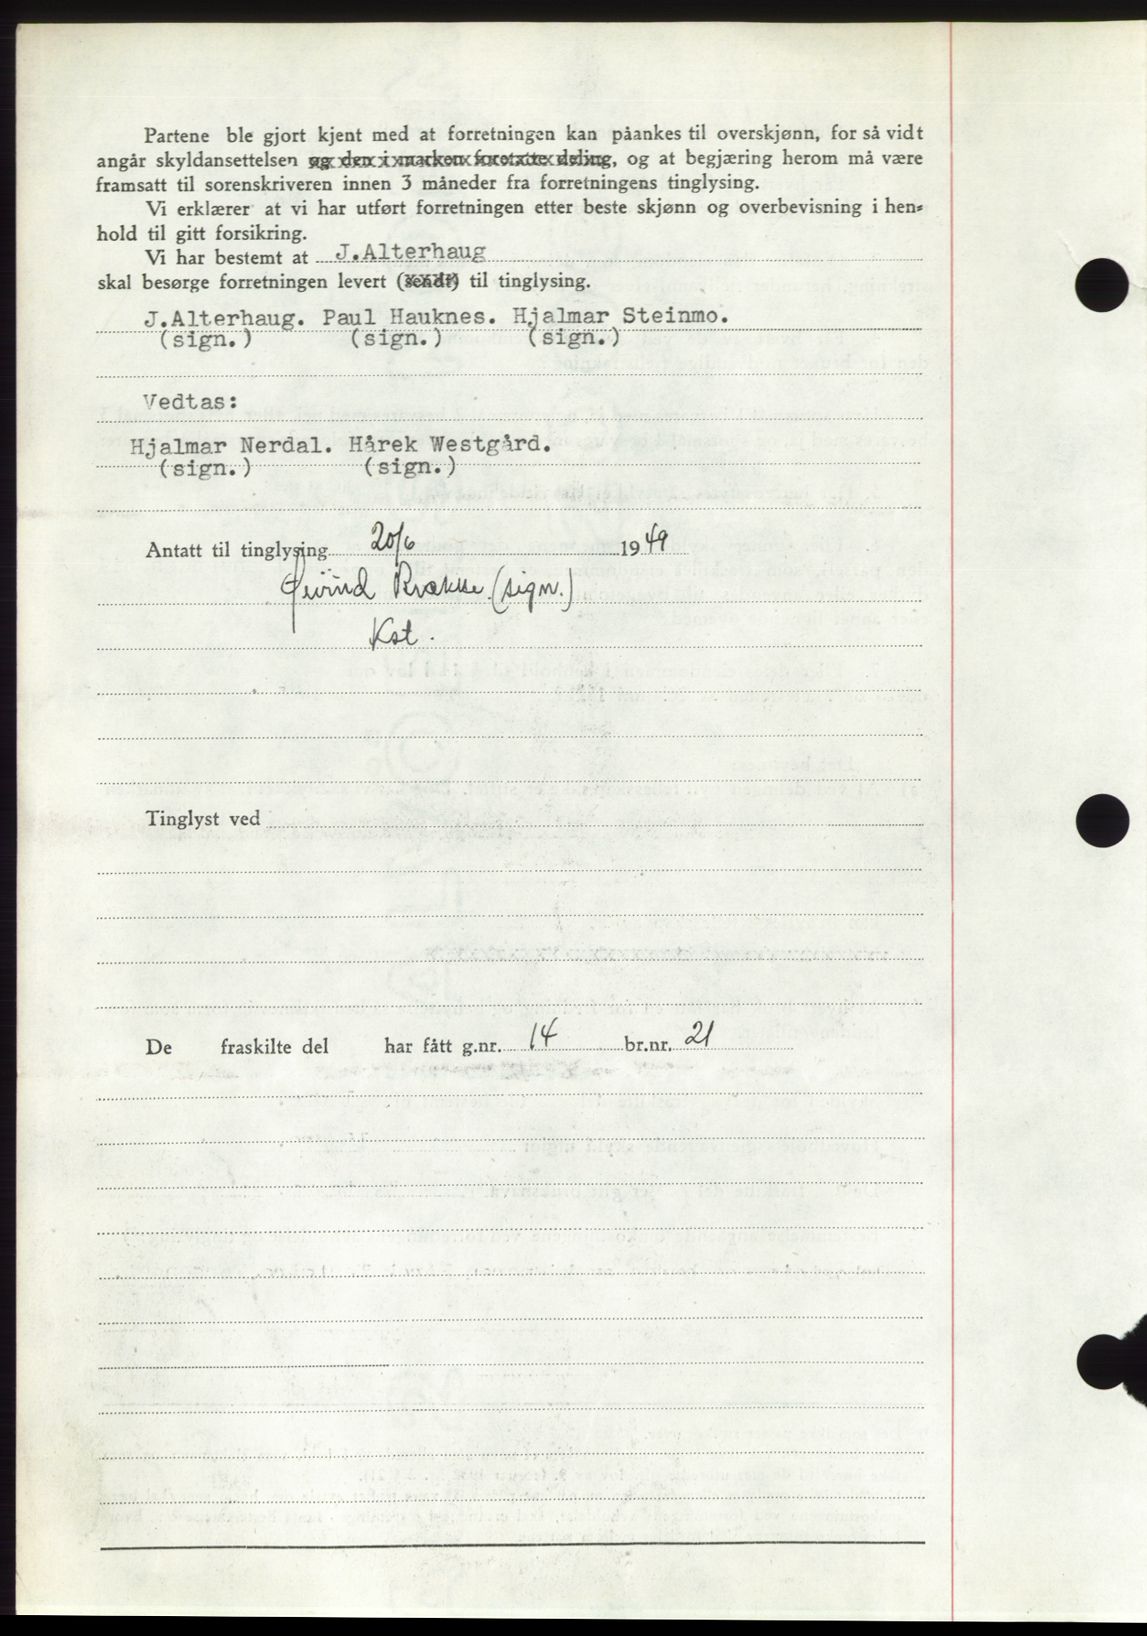 Partene ble gjort kjent med at forretningen kan påankes til overskjønn, for så vidt
angår skyldansettelsen og den i marken foretatte deling, og at begjæring herom må være
framsatt til sorenskriveren innen 3 måneder fra forretningens tinglysing.
Vi erklærer at vi har utført forretningen etter beste skjønn og overbevisning i hen-
hold til gitt forsikring.
Vi har bestemt at J.Alterhaug
skal besørge forretningen levert (sendt) til tinglysing.
J.Alterhaug. Paul Hauknes. Hjalmar Steinmo.
(sign.) (sign.) (sign.)
Vedtas:
Hjalmar Nerdal. Hårek Westgård.
(sign.) (sign.)
Antatt til tinglysing 20/6 1949
Øivind (sign.)
Kst.
Tinglyst ved
De fraskilte del har fått g.nr. 14 br.nr. 21